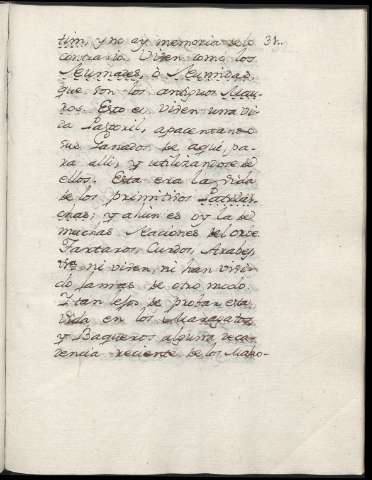 tim, y no ay memoria de lo 31.
contrario. Viven como los
Neumades, ò Neumidas,
que son los antiguos Mau-
ros. Esto es, viven una vi-
da Pastoril, apacentando
sus Ganados de aqui, pa-
ra alli, y utilizandose de
ellos. Esta era la vida
de los primitivos Patriar-
chas; y ahun es oy la de
muchas Naciones del Orbe
Tartaros, Curdos, Arabes,
ni viven, ni han vivi-
do jamas de otro modo.
I tan lejos de probar esta
vida en los Maragatos
y Baqueros alguna decan-
dencia reciente de los Maho-